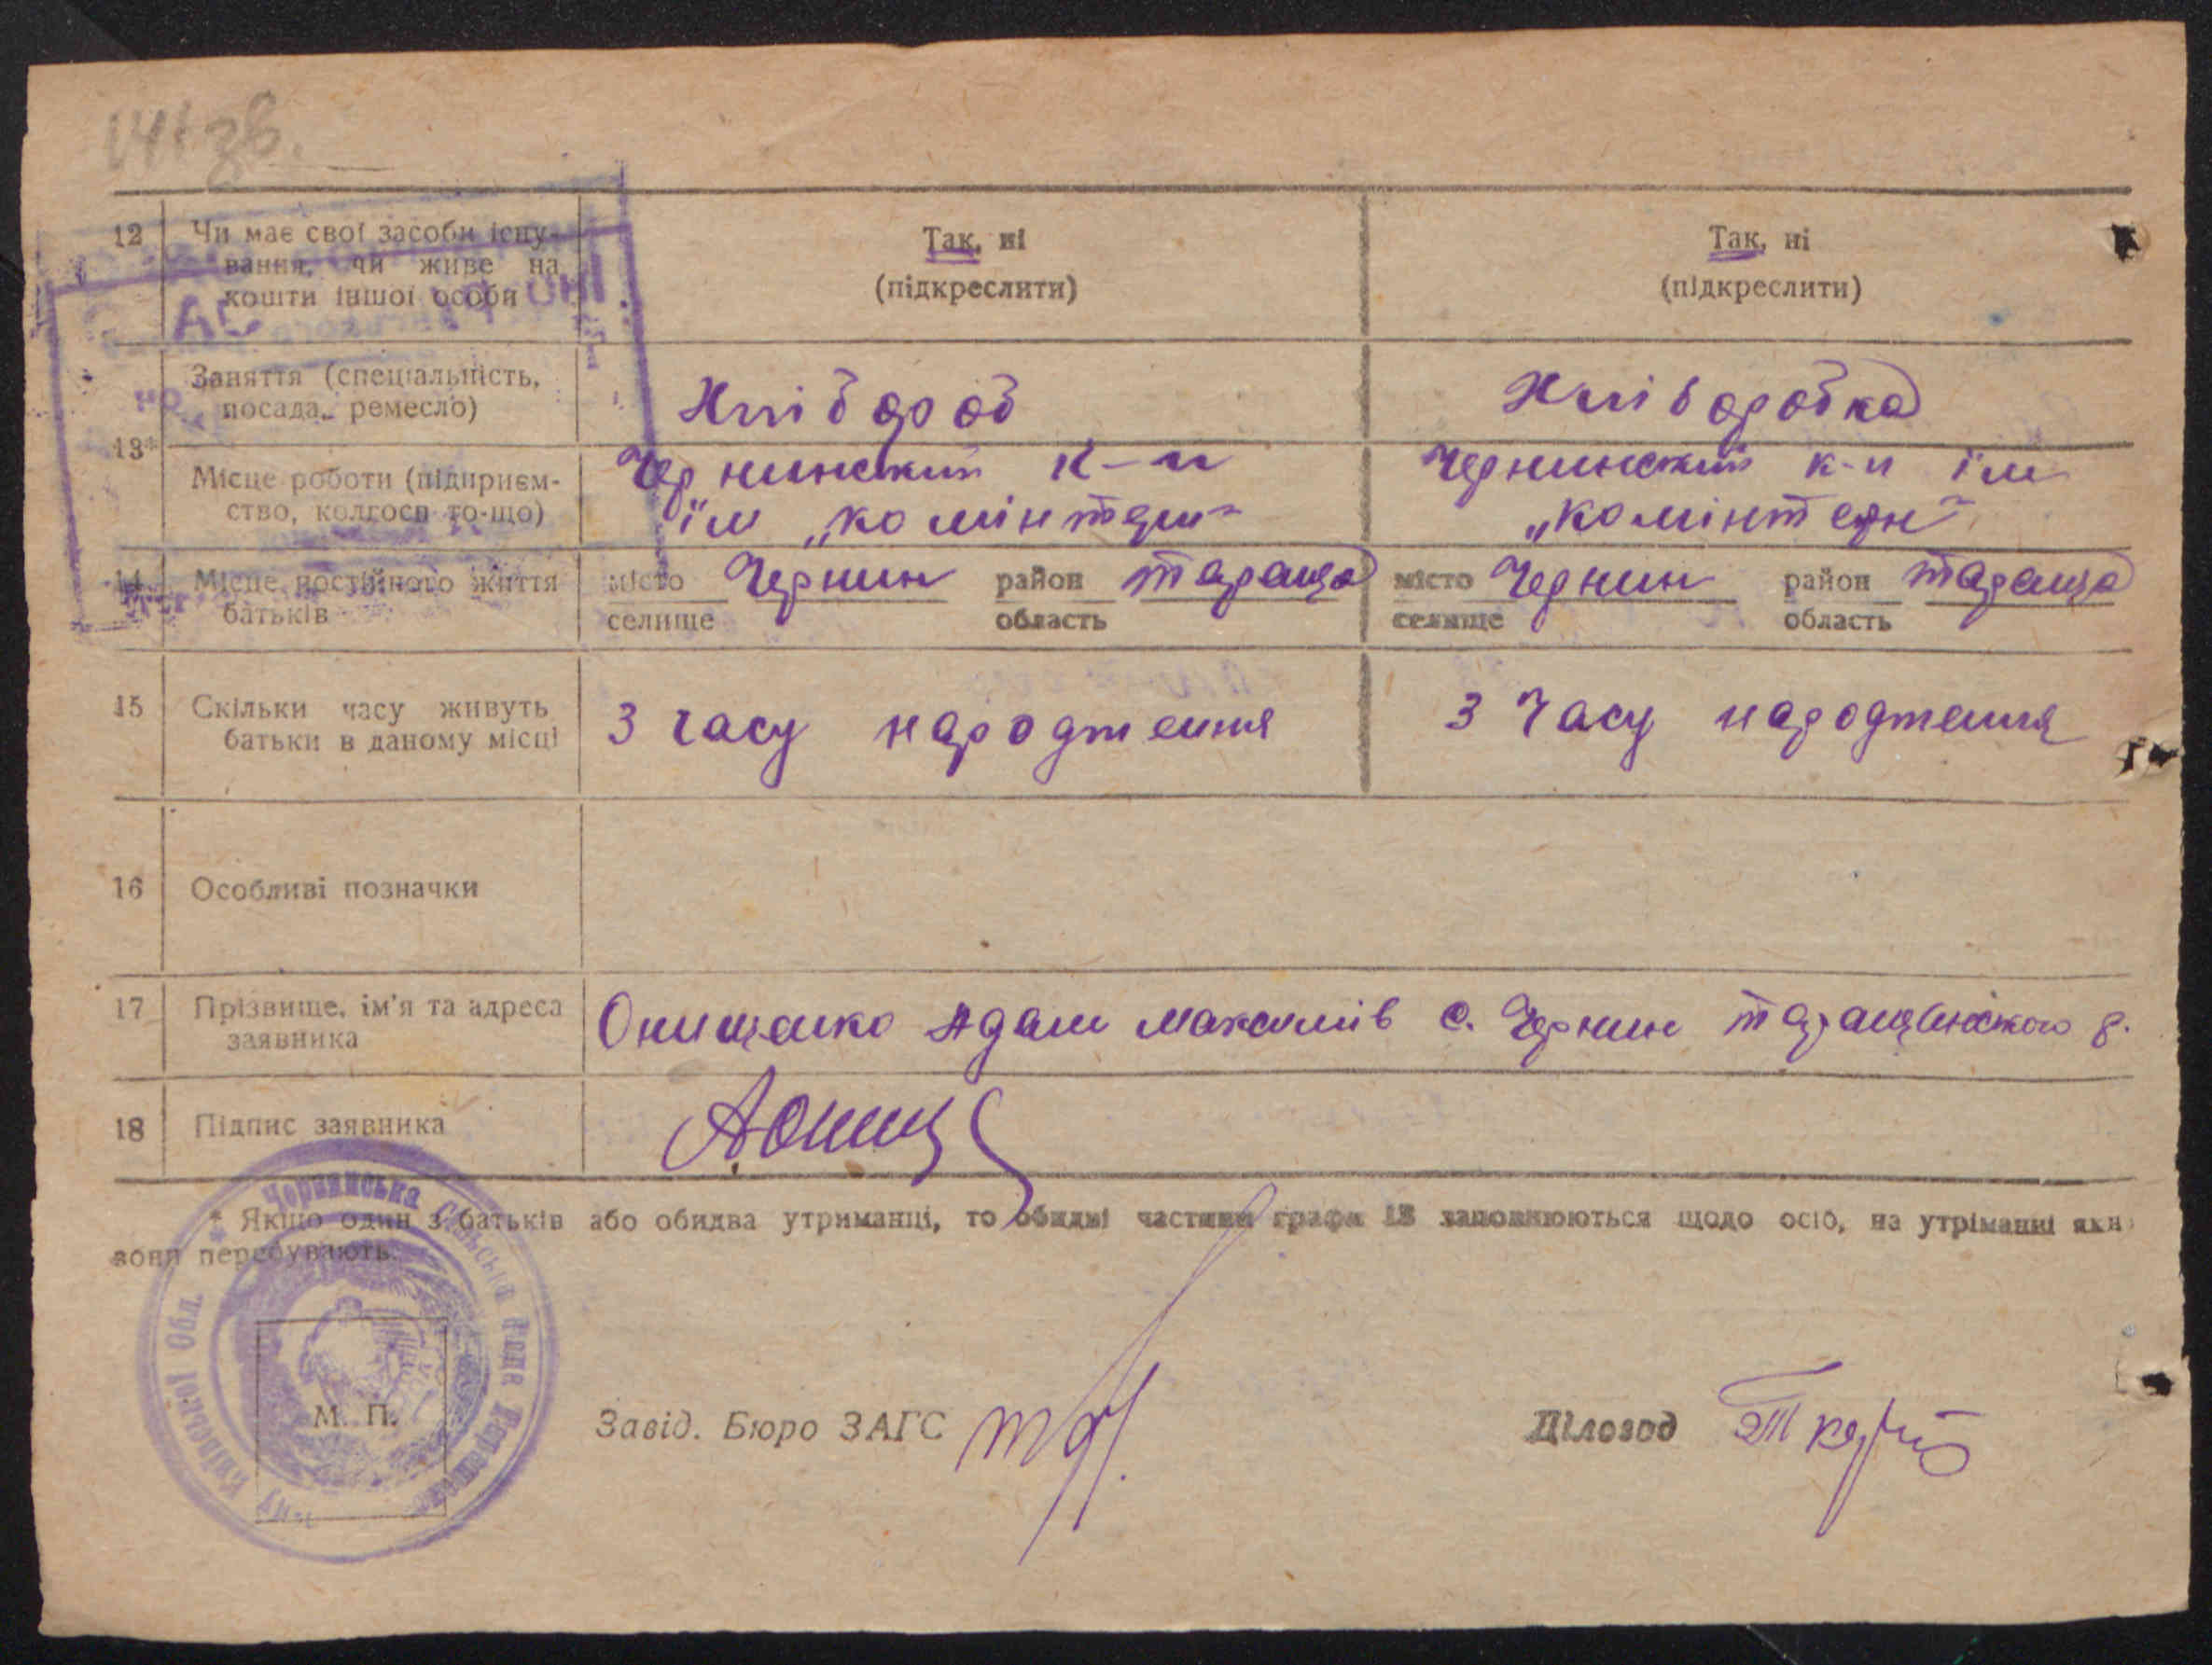 141 зв.
12 Чи має свої засоби існу- Так, ні Так, ні
вання, чи живе на (підкреслити) (підкреслити)
кошти іншої особи
Заняття (спеціальність, Хлібороб Хліборобка
посада, ремесло)
13* Чернинский к-п Чернинский к-п ім
Місце роботи (підприєм- ім „комінтерн" „комінтерн"
ство, колгосп то-що)
14 Місце постійного життя місто Чернин район тараща місто Чернин район тараща
батьків селище область селище область
15 Скільки часу живуть З часу народження З часу народження
батьки в даному місці
16 Особливі позначки
17 Прізвище, ім'я та адреса Онищенко Адам максимів с. Чернин таращинского р.
заявника
18 Підпис заявника АОнищ
* Якщо один з батьків або обидва утриманці, то обидві частини графи 13 заповнюються щодо осіб, на утріманні яки
вони перебувають.
Київської Обл.
М. П.
Завід. Бюро ЗАГС Діловод